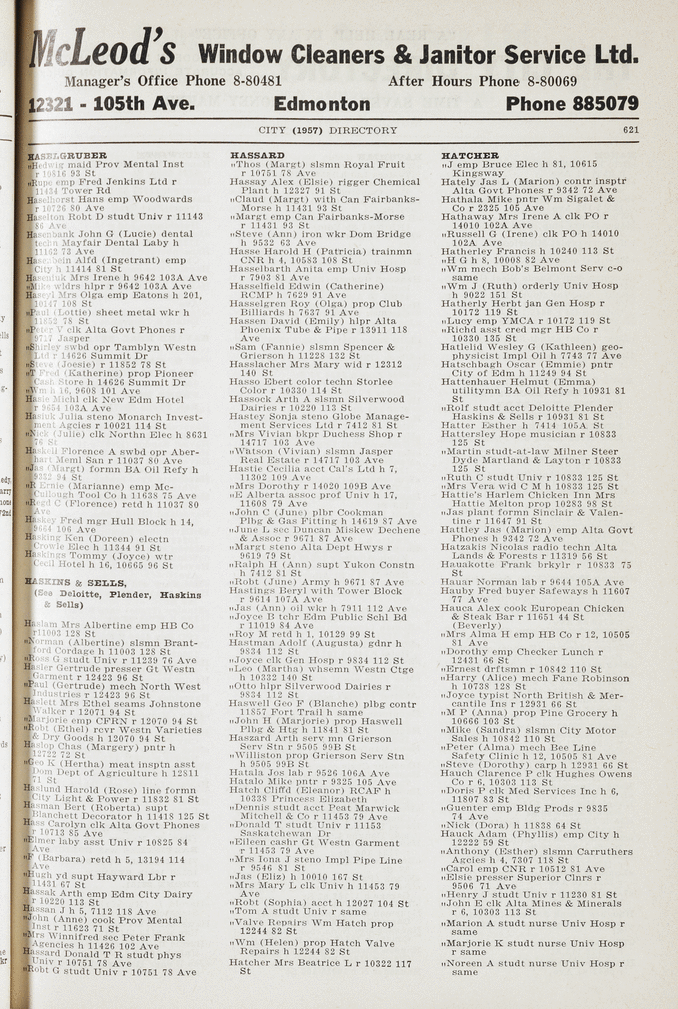 McLeod's Window Cleaners & Janitor Service Ltd.
Manager's Office Phone 8-80481 After Hours Phone 8-80069
12321 - 105th Ave. Edmonton Phone 885079
CITY (1957) DIRECTORY 621
HASELGRUBER
„Hedwig maid Prov Mental Inst
r 10816 93 St
„Rupe emp Fred Jenkins Ltd r
11434 Tower Rd
Haselhorst Hans emp Woodwards
r 10726 80 Ave
Haselton Robt D studt Univ r 11143
86 Ave
Hasenbank John G (Lucie) dental
techn Mayfair Dental Laby h
11162 73 Ave
Hasenbein Alfd (Ingetrant) emp
City h 11414 81 St
Haseniuk Mrs Irene h 9642 103A Ave
„Mike wldrs hlpr r 9642 103A Ave
Haseyl Mrs Olga emp Eatons h 201,
10147 108 St
„Paul (Lottie) sheet metal wkr h
11852 78 St
„Peter V clk Alta Govt Phones r
9717 Jasper
„Shirley swbd opr Tamblyn Westn
Ltd r 14626 Summit Dr
„Steve (Joesie) r 11852 78 St
„T Fred (Katherine) prop Pioneer
Cash Store h 14626 Summit Dr
„Wm h 16, 9608 101 Ave
Hasie Michl clk New Edm Hotel
r 9654 103A Ave
Hasiuk Julia steno Monarch Invest-
ment Agcies r 10021 114 St
„Nick (Julie) clk Northn Elec h 8631
76 St
Haskell Florence A swbd opr Aber-
hart Meml San r 11037 80 Ave
„Jas (Margt) formn BA Oil Refy h
9532 94 St
„R Ernie (Marianne) emp Mc-
Cullough Tool Co h 11638 75 Ave
„Regd C (Florence) retd h 11037 80
Ave
Haskey Fred mgr Hull Block h 14,
9664 106 Ave
Hasking Ken (Doreen) electn
Crowle Elec h 11344 91 St
Haskings Tommy (Joyce) wtr
Cecil Hotel h 16, 10665 96 St
HASKINS & SELLS,
(See Deloitte, Plender, Haskins
& Sells)
Haslam Mrs Albertine emp HB Co
r 11003 128 St
„Norman (Albertine) slsmn Brant-
ford Cordage h 11003 128 St
„Ross G studt Univ r 11239 76 Ave
Hasler Gertrude presser Gt Westn
Garment r 12423 96 St
„Paul (Gertrude) mech North West
Industries r 12423 96 St
Haslett Mrs Ethel seams Johnstone
Walker r 12071 94 St
„Marjorie emp CFRN r 12070 94 St
„Robt (Ethel) rcvr Westn Varieties
& Dry Goods h 12070 94 St
Haslop Chas (Margery) pntr h
12722 72 St
„Geo K (Hertha) meat insptn asst
Dom Dept of Agriculture h 12811
71 St
Haslund Harold (Rose) line formn
City Light & Power r 11832 81 St
Hasman Bert (Roberta) supt
Blanchett Decorator h 11418 125 St
Hass Carolyn clk Alta Govt Phones
r 10713 85 Ave
„Elmer laby asst Univ r 10825 84
Ave
„F (Barbara) retd h 5, 13194 114
Ave
„Hugh yd supt Hayward Lbr r
11431 67 St
Hassak Arth emp Edm City Dairy
r 10220 113 St
Hassan J h 5, 7112 118 Ave
„John (Anne) cook Prov Mental
Inst r 11623 71 St
„Mrs Winnifred sec Peter Frank
Agencies h 11426 102 Ave
Hassard Donald T R studt phys
Univ r 10751 78 Ave
„Robt G studt Univ r 10751 78 Ave
HASSARD
„Thos (Margt) slsmn Royal Fruit
r 10751 78 Ave
Hassay Alex (Elsie) rigger Chemical
Plant h 12327 91 St
„Claud (Margt) with Can Fairbanks-
Morse h 11431 93 St
„Margt emp Can Fairbanks-Morse
r 11431 93 St
„Steve (Ann) iron wkr Dom Bridge
h 9532 63 Ave
Hasse Harold H (Patricia) trainmn
CNR h 4, 10583 108 St
Hasselbarth Anita emp Univ Hosp
r 7903 81 Ave
Hasselfield Edwin (Catherine)
RCMP h 7629 91 Ave
Hasselgren Roy (Olga) prop Club
Billiards h 7637 91 Ave
Hassen David (Emily) hlpr Alta
Phoenix Tube & Pipe r 13911 118
Ave
„Sam (Fannie) slsmn Spencer &
Grierson h 11228 132 St
Hasslacher Mrs Mary wid r 12312
140 St
Hasso Ebert color techn Storlee
Color r 10330 114 St
Hassock Arth A slsmn Silverwood
Dairies r 10220 113 St
Hastey Sonja steno Globe Manage-
ment Services Ltd r 7412 81 St
„Mrs Vivian bkpr Duchess Shop r
14717 103 Ave
„Watson (Vivian) slsmn Jasper
Real Estate r 14717 103 Ave
Hastie Cecilia acct Cal's Ltd h 7,
11302 109 Ave
„Mrs Dorothy r 14020 109B Ave
„E Alberta assoc prof Univ h 17,
11608 79 Ave
„John C (June) plbr Cookman
Plbg & Gas Fitting h 14619 87 Ave
„June L sec Duncan Miskew Dechene
& Assoc r 9671 87 Ave
„Margt steno Alta Dept Hwys r
9619 79 St
„Ralph H (Ann) supt Yukon Constn
h 7412 81 St
„Robt (June) Army h 9671 87 Ave
Hastings Beryl with Tower Block
r 9614 107A Ave
„Jas (Ann) oil wkr h 7911 112 Ave
„Joyce B tchr Edm Public Schl Bd
r 11019 84 Ave
„Roy M retd h 1, 10129 99 St
Hastman Adolf (Augusta) gdnr h
9834 112 St
„Joyce clk Gen Hosp r 9834 112 St
„Leo (Martha) whsemn Westn Ctge
h 10332 140 St
„Otto hlpr Silverwood Dairies r
9834 112 St
Haswell Geo F (Blanche) plbg contr
11857 Fort Trail h same
„John H (Marjorie) prop Haswell
Plbg & Htg h 11841 81 St
Haszard Arth serv mn Grierson
Serv Stn r 9505 99B St
„Williston prop Grierson Serv Stn
h 9505 99B St
Hatala Jos lab r 9526 106A Ave
Hatalo Mike pntr r 9325 105 Ave
Hatch Cliffd (Eleanor) RCAF h
10338 Princess Elizabeth
„Dennis studt acct Peat Marwick
Mitchell & Co r 11453 79 Ave
„Donald T studt Univ r 11153
Saskatchewan Dr
„Eileen cashr Gt Westn Garment
r 11453 79 Ave
„Mrs Iona J steno Impl Pipe Line
r 9546 81 St
„Jas (Eliz) h 10010 167 St
„Mrs Mary L clk Univ h 11453 79
Ave
„Robt (Sophia) acct h 12027 104 St
„Tom A studt Univ r same
„Valve Repairs Wm Hatch prop
12244 82 St
„Wm (Helen) prop Hatch Valve
Repairs h 12244 82 St
Hatcher Mrs Beatrice L r 10322 117
St
HATCHER
„J emp Bruce Elec h 81, 10615
Kingsway
Hately Jas L (Marion) contr insptr
Alta Govt Phones r 9342 72 Ave
Hathala Mike pntr Wm Sigalet &
Co r 2325 105 Ave
Hathaway Mrs Irene A clk PO r
14010 102A Ave
„Russell G (Irene) clk PO h 14010
102A Ave
Hatherley Francis h 10240 113 St
„H G h 8, 10008 82 Ave
„Wm mech Bob's Belmont Serv c-o
same
„Wm J (Ruth) orderly Univ Hosp
h 9022 151 St
Hatherly Herbt jan Gen Hosp r
10172 119 St
„Lucy emp YMCA r 10172 119 St
„Richd asst cred mgr HB Co r
10330 135 St
Hatlelid Wesley G (Kathleen) geo-
physicist Impl Oil h 7743 77 Ave
Hatschbagh Oscar (Emmie) pntr
City of Edm h 11249 94 St
Hattenhauer Helmut (Emma)
utilitymn BA Oil Refy h 10931 81
St
„Rolf studt acct Deloitte Plender
Haskins & Sells r 10931 81 St
Hatter Esther h 7414 105A St
Hattersley Hope musician r 10833
125 St
„Martin studt-at-law Milner Steer
Dyde Martland & Layton r 10833
125 St
„Ruth C studt Univ r 10833 125 St
„Mrs Vera wid C M h 10833 125 St
Hattie's Harlem Chicken Inn Mrs
Hattie Melton prop 10283 98 St
„Jas plant formn Sinclair & Valen-
tine r 11647 91 St
Hattley Jas (Marion) emp Alta Govt
Phones h 9342 72 Ave
Hatzakis Nicolas radio techn Alta
Lands & Forests r 11319 56 St
Hauakotte Frank brkylr r 10833 75
St
Hauar Norman lab r 9644 105A Ave
Hauby Fred buyer Safeways h 11607
77 Ave
Hauca Alex cook European Chicken
& Steak Bar r 11651 44 St
(Beverly)
„Mrs Alma H emp HB Co r 12, 10505
81 Ave
„Dorothy emp Checker Lunch r
12431 66 St
„Ernest drftsmn r 10842 110 St
„Harry (Alice) mech Fane Robinson
h 10738 128 St
„Joyce typist North British & Mer-
cantile Ins r 12931 66 St
„M P (Anna) prop Pine Grocery h
10666 103 St
„Mike (Sandra) slsmn City Motor
Sales h 10842 110 St
„Peter (Alma) mech Bee Line
Safety Clinic h 12, 10505 81 Ave
„Steve (Dorothy) carp h 12931 66 St
Hauch Clarence P clk Hughes Owens
Co r 6, 10303 113 St
„Doris P clk Med Services Inc h 6,
11807 83 St
„Guenter emp Bldg Prods r 9835
74 Ave
„Nick (Dora) h 11838 64 St
Hauck Adam (Phyllis) emp City h
12222 59 St
„Anthony (Esther) slsmn Carruthers
Agcies h 4, 7307 118 St
„Carol emp CNR r 10512 81 Ave
„Elsie presser Superior Clnrs r
9506 71 Ave
„Henry J studt Univ r 11230 81 St
„John E clk Alta Mines & Minerals
r 6, 10303 113 St
„Marion A studt nurse Univ Hosp r
same
„Marjorie K studt nurse Univ Hosp
r same
„Noreen A studt nurse Univ Hosp r
same